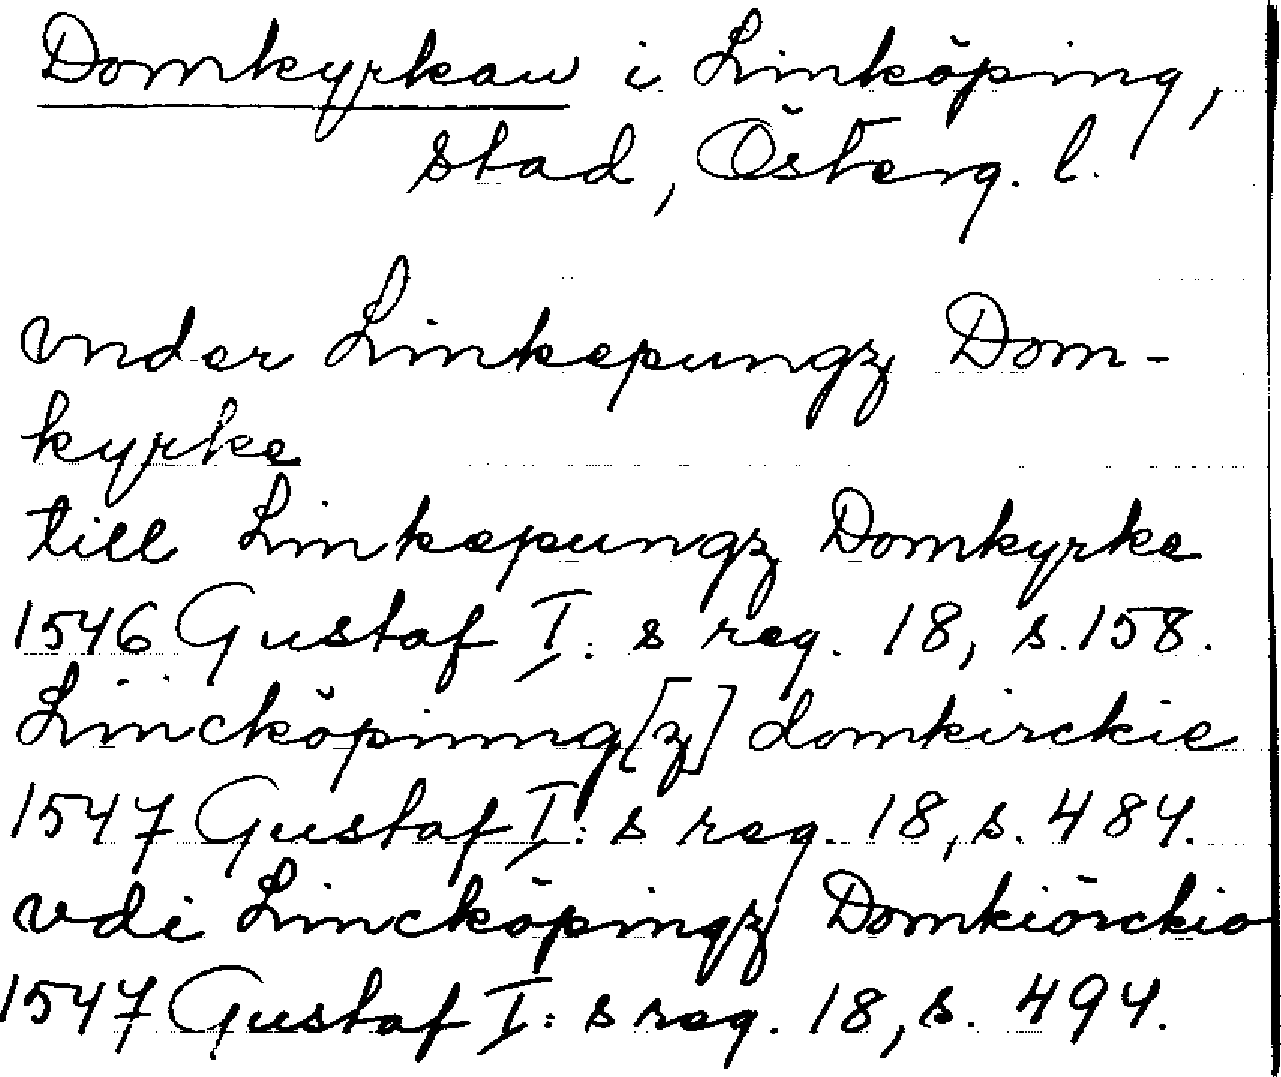 Domkyrkan i Linköping,
stad, Österg. l.
vnder Linkepungz Dom-
kyrke
till Linkepungz Domkyrke
1546 Gustaf I: s reg. 18, s. 158.
Lincköpinng[z] domkirckie
1547 Gustaf I: s reg. 18, s. 484.
vdi Lincköpingz Domkiörckio
1547 Gustaf I: s reg. 18, s. 494.